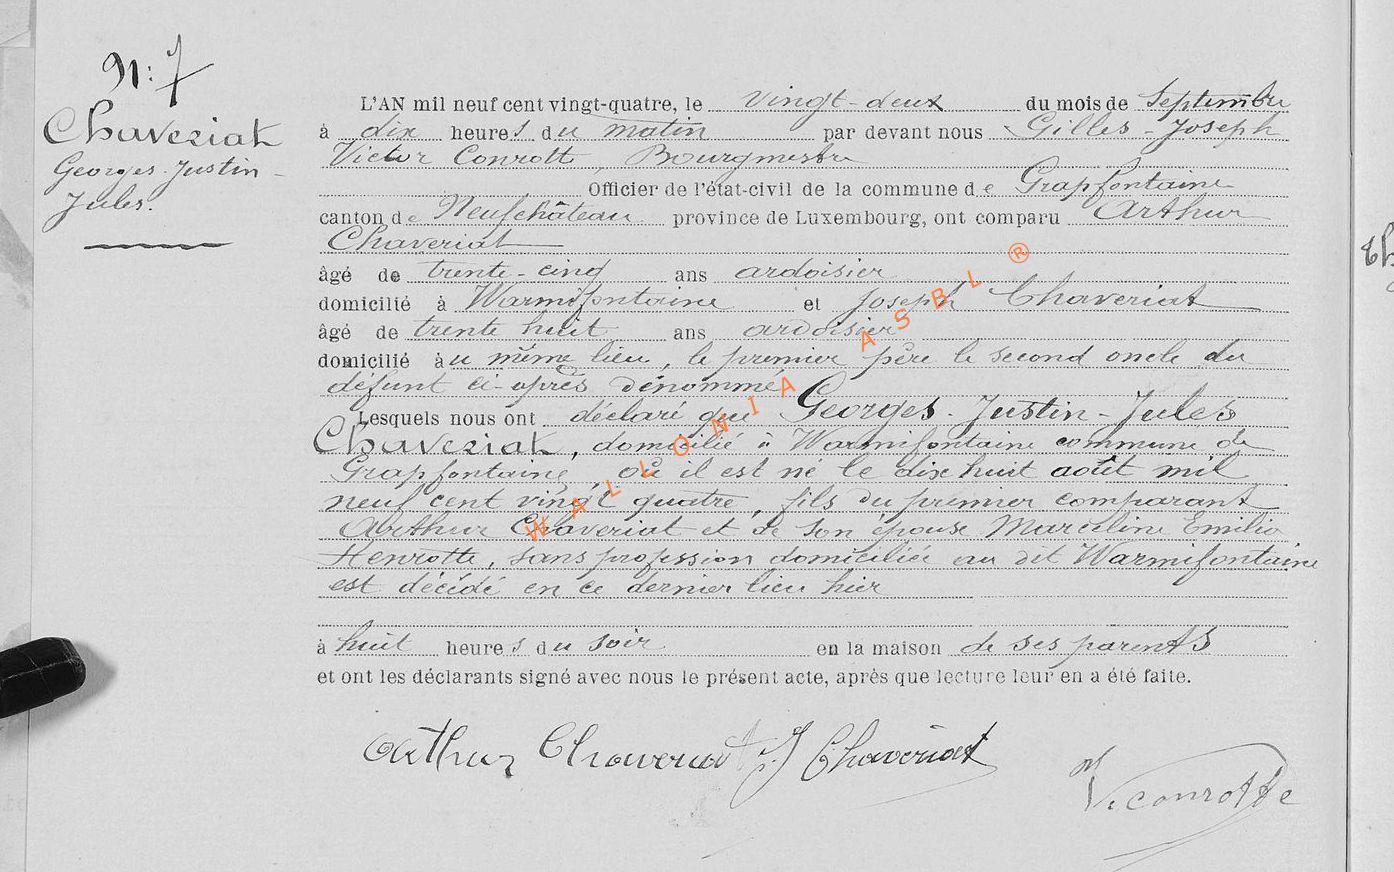 N: 7
Chaveriat
Georges-Justin-
Jules.
L'AN mil neuf cent vingt-quatre, le vingt-deux du mois de Septembre
à dix heures du matin par devant nous Gilles-Joseph
Victor Conrotte, Bourgmestre
Officier de l'état-civil de la commune de Grapfontaine
canton de Neufchâteau province de Luxembourg, ont comparu Arthur
Chaveriat
âgé de trente-cinq ans ardoisier
domicilié à Warmifontaine et Joseph Chaveriat
âgé de trente huit ans ardoisier
domicilié au même lieu, le premier père le second oncle du
défunt ci-après dénommé
Lesquels nous ont déclaré que Georges-Justin-Jules
Chaveriat, domicilié à Warmifontaine commune de
Grapfontaine, où il est né le dix huit août mil
neuf cent vingt quatre, fils du premier comparant
Arthur Chaveriat et de son épouse Marceline Emilie
Henrotte, sans profession domiciliée au dit Warmifontaine
est décédé en ce dernier lieu hier
à huit heures du soir en la maison de ses parents
et ont les déclarants signé avec nous le présent acte, après que lecture leur en a été faite.
Arthur Chaveriat J Chaveriat
V. Conrotte
WALLONIA ASBL ®